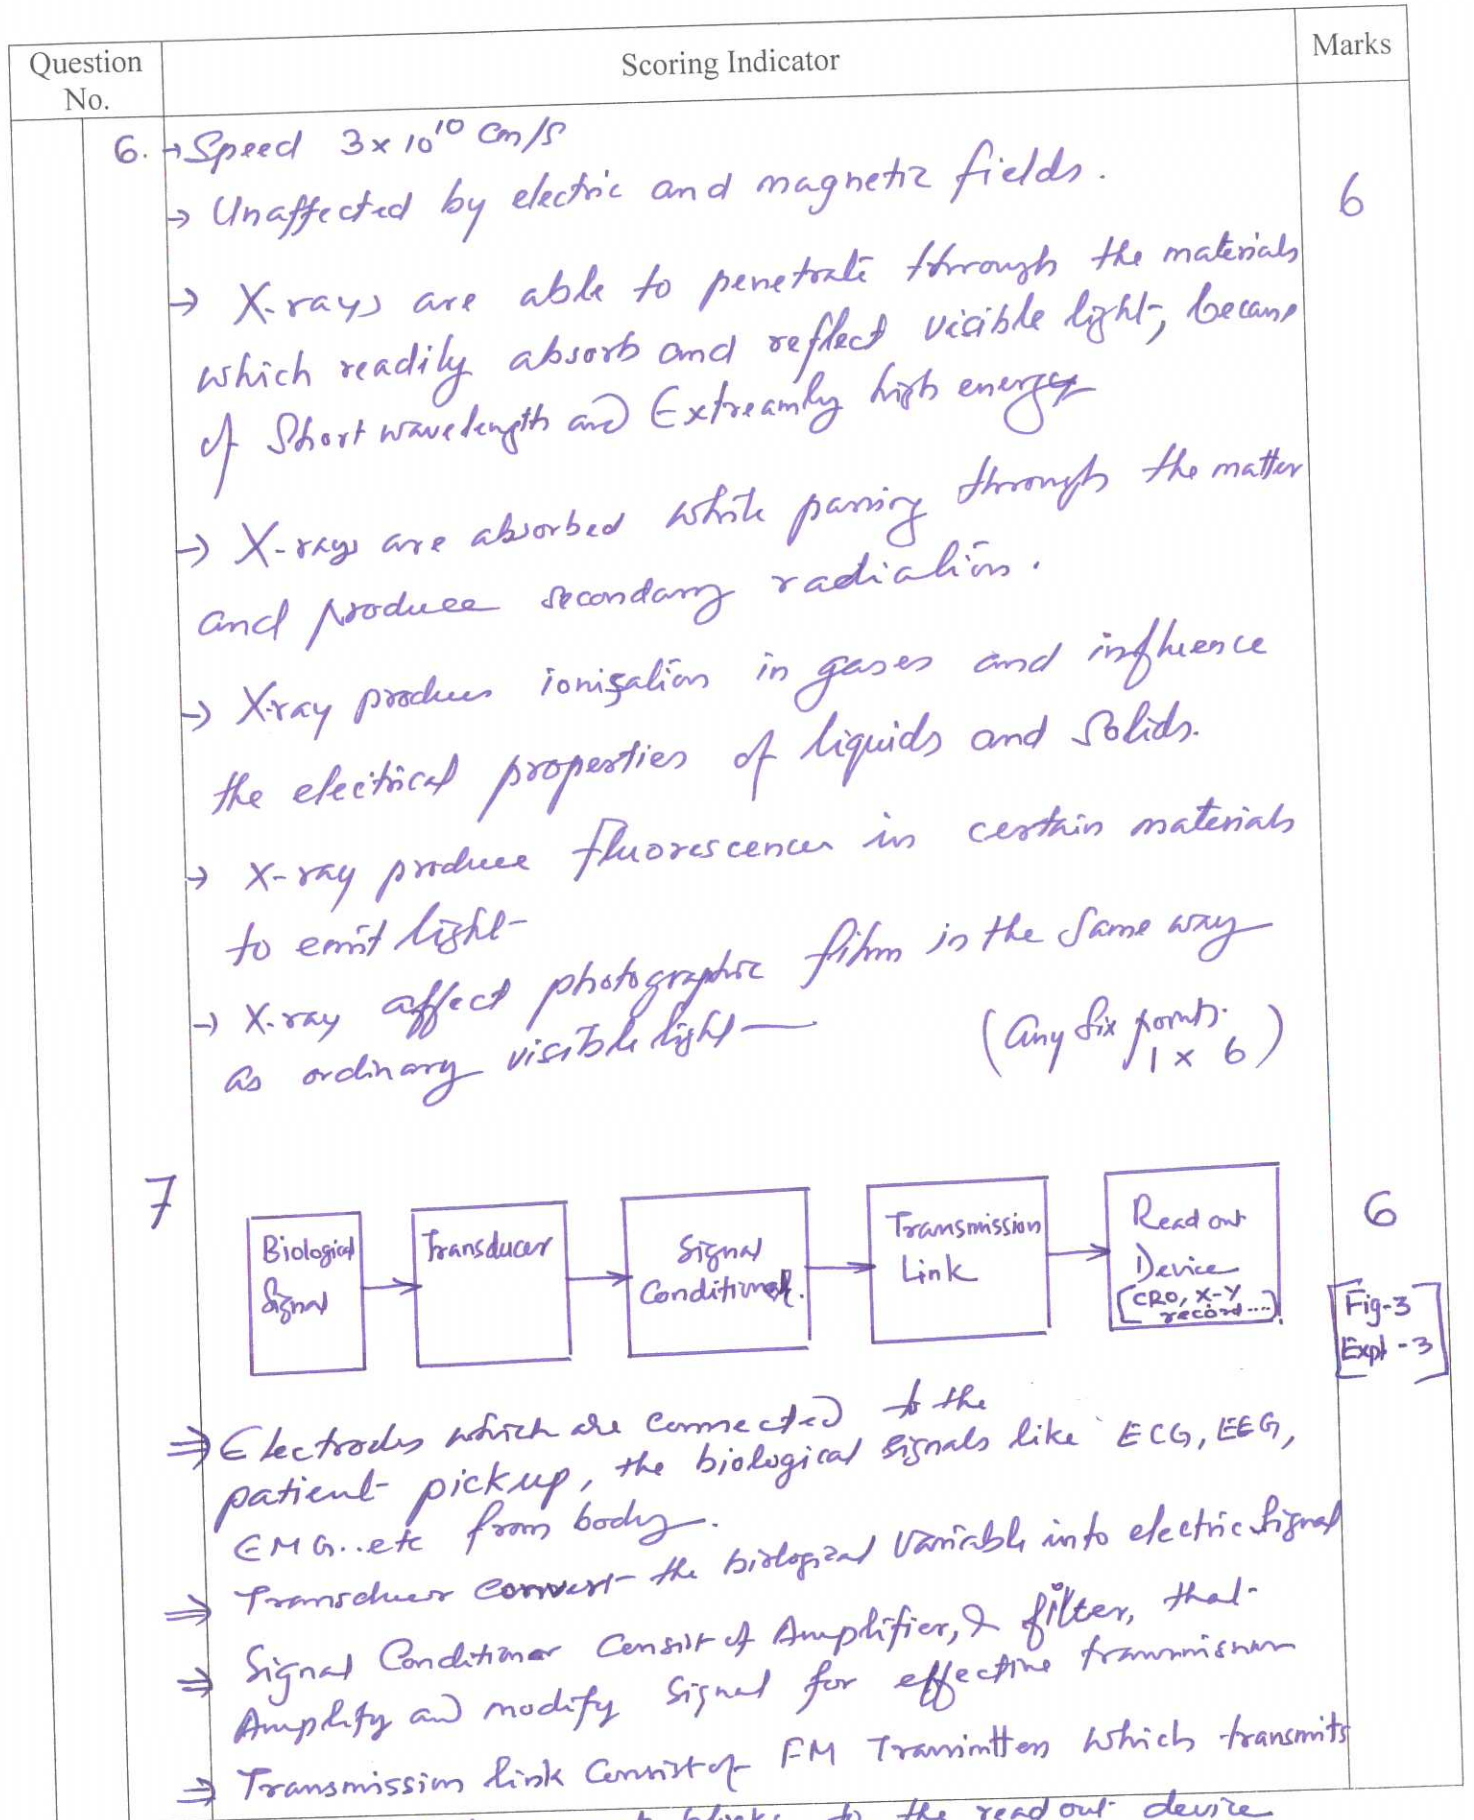 Question No.
Scoring Indicator
Marks
6. → Speed 3 x 10¹⁰ Cm/s
→ Unaffected by electric and magnetic fields.
6
→ X-rays are able to penetrate through the materials
which readily absorb and reflect visible light, because
of Short wavelength and Extreamly high energy
→ X-rays are absorbed while passing through the matter
and produce secondary radiation.
→ X-ray produces ionisation in gases and influence
the electrical properties of liquids and Solids.
→ X-ray produce fluorescence in certain materials
to emit light
→ X-ray affect photographic film in the Same way
as ordinary visible light
(Any Six points.
1 x 6)
7
Biological Signal
Transducer
Signal Conditioner.
Transmission Link
Read out Device
[CRO, X-Y record....]
6
[Fig-3
Expl - 3]
⇒ Electrodes which are connected to the
patient pickup, the biological signals like ECG, EEG,
EMG..etc from body.
⇒ Transducer convert the biological Variable into electric Signal
⇒ Signal Conditioner Consist of Amplifier, & filter, that
Amplify and modify Signal for effective transmission
⇒ Transmission link Consist of FM Transmitters which transmits
to the read out device